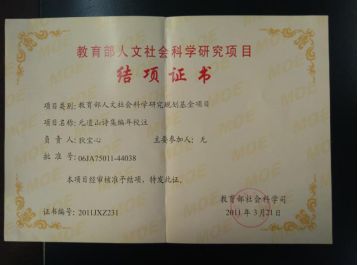 教育部人文社会科学研究项目
结项证书
项目类别:教育部人文社会科学研究规划基金项目
项目名称:元遗山诗集编年校注
负责人:狄宝心 主要参加人:无
批准号:06JA75011-44038
本项目经审核准予结项,特发此证。
教育部社会科学司
2011年3月21日
证书编号:2011JXZ231